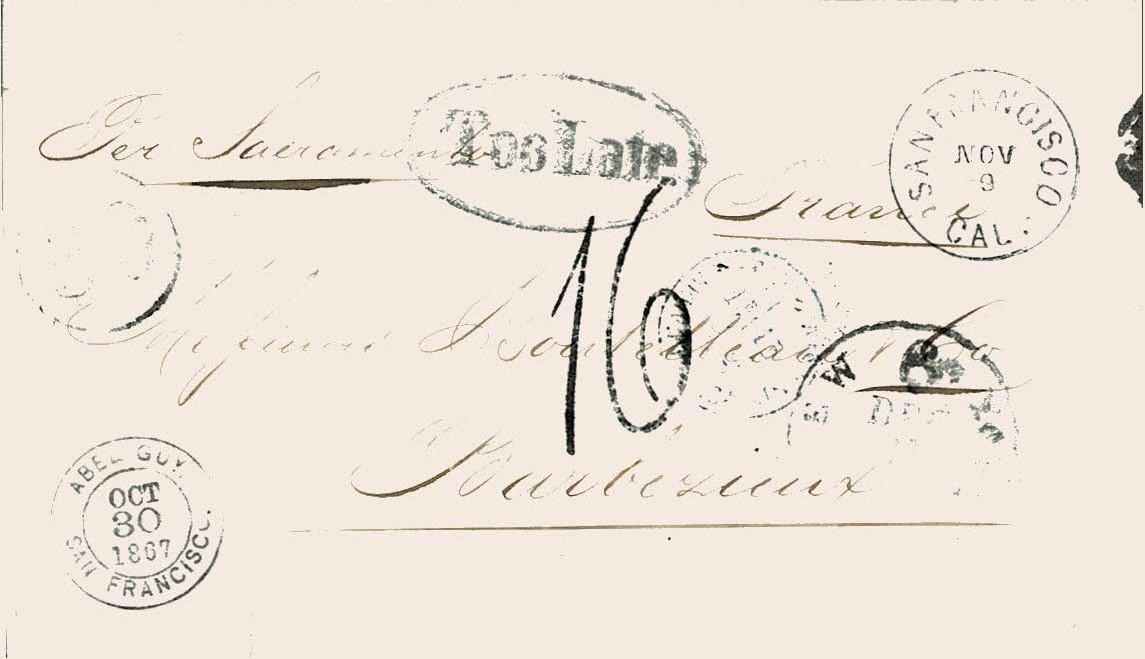 Per Sacramento
Too Late
France
SAN FRANCISCO
NOV
9
CAL.
16
Messieurs Boutelleau & Co
Barbezieux
ABEL GUY.
OCT
30
1867
SAN FRANCISCO.